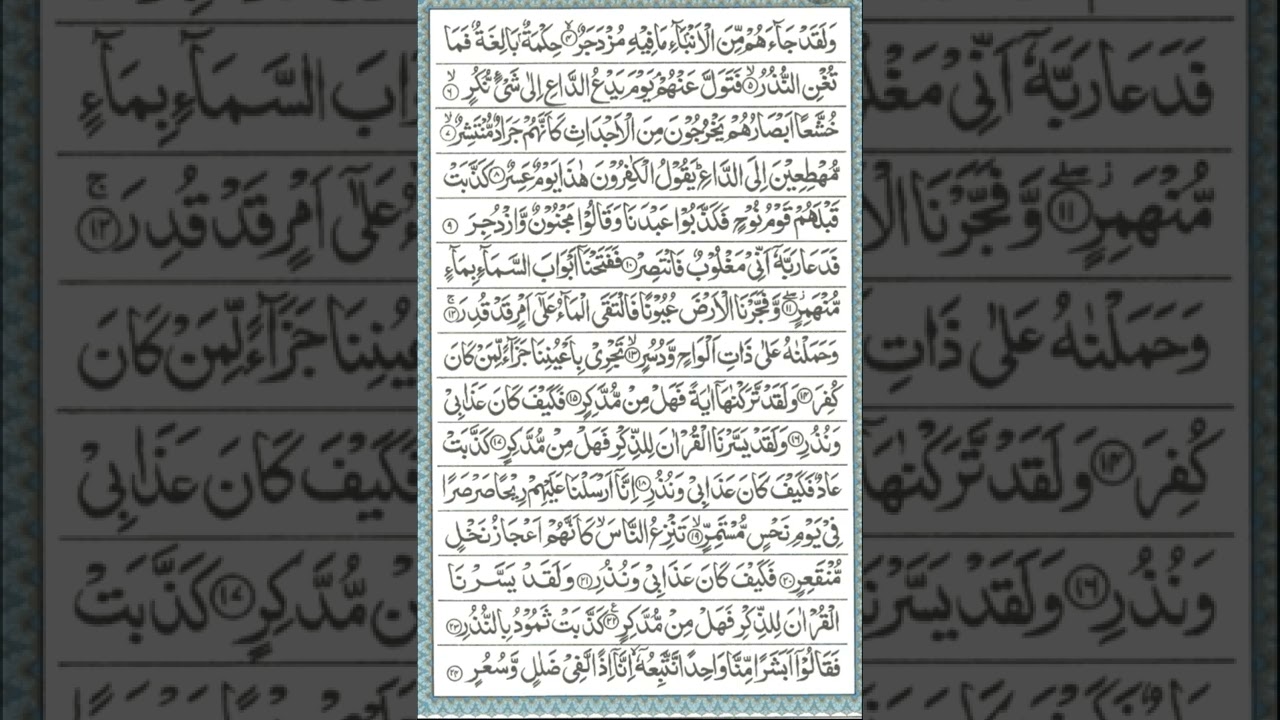 وَلَقَدْ جَآءَهُمْ مِّنَ الْاَنْۢبَآءِ مَا فِيْهِ مُزْدَجَرٌ ۙ۴ حِكْمَةٌۢ بَالِغَةٌ فَمَا
تُغْنِ النُّذُرُ ۙ۵ فَتَوَلَّ عَنْهُمْ ۘ يَوْمَ يَدْعُ الدَّاعِ اِلٰى شَیْءٍ نُّكُرٍ ۙ۶
خُشَّعًا اَبْصَارُهُمْ يَخْرُجُوْنَ مِنَ الْاَجْدَاثِ كَاَنَّهُمْ جَرَادٌ مُّنْتَشِرٌ ۙ۷
مُّهْطِعِيْنَ اِلَى الدَّاعِ ؕ يَقُوْلُ الْكٰفِرُوْنَ هٰذَا يَوْمٌ عَسِرٌ ۸ كَذَّبَتْ
قَبْلَهُمْ قَوْمُ نُوْحٍ فَكَذَّبُوْا عَبْدَنَا وَقَالُوْا مَجْنُوْنٌ وَّازْدُجِرَ ۹
فَدَعَا رَبَّهٗۤ اَنِّیْ مَغْلُوْبٌ فَانْتَصِرْ ۱۰ فَفَتَحْنَاۤ اَبْوَابَ السَّمَآءِ بِمَآءٍ
مُّنْهَمِرٍ ۖ۱۱ وَّفَجَّرْنَا الْاَرْضَ عُيُوْنًا فَالْتَقَى الْمَآءُ عَلٰۤى اَمْرٍ قَدْ قُدِرَ ۚ۱۲
وَحَمَلْنٰهُ عَلٰى ذَاتِ اَلْوَاحٍ وَّدُسُرٍ ۙ۱۳ تَجْرِیْ بِاَعْيُنِنَا جَزَآءً لِّمَنْ كَانَ
كُفِرَ ۱۴ وَلَقَدْ تَّرَكْنٰهَاۤ اٰيَةً فَهَلْ مِنْ مُّدَّكِرٍ ۱۵ فَكَيْفَ كَانَ عَذَابِیْ
وَنُذُرِ ۱۶ وَلَقَدْ يَسَّرْنَا الْقُرْاٰنَ لِلذِّكْرِ فَهَلْ مِنْ مُّدَّكِرٍ ۱۷ كَذَّبَتْ
عَادٌ فَكَيْفَ كَانَ عَذَابِیْ وَنُذُرِ ۱۸ اِنَّاۤ اَرْسَلْنَا عَلَيْهِمْ رِيْحًا صَرْصَرًا
فِیْ يَوْمِ نَحْسٍ مُّسْتَمِرٍّ ۙ۱۹ تَنْزِعُ النَّاسَ ۙ كَاَنَّهُمْ اَعْجَازُ نَخْلٍ
مُّنْقَعِرٍ ۲۰ فَكَيْفَ كَانَ عَذَابِیْ وَنُذُرِ ۲۱ وَلَقَدْ يَسَّرْنَا
الْقُرْاٰنَ لِلذِّكْرِ فَهَلْ مِنْ مُّدَّكِرٍ ۲۲ كَذَّبَتْ ثَمُوْدُ بِالنُّذُرِ ۲۳
فَقَالُوْۤا اَبَشَرًا مِّنَّا وَاحِدًا نَّتَّبِعُهٗۤ ۙ اِنَّاۤ اِذًا لَّفِیْ ضَلٰلٍ وَّسُعُرٍ ۲۴